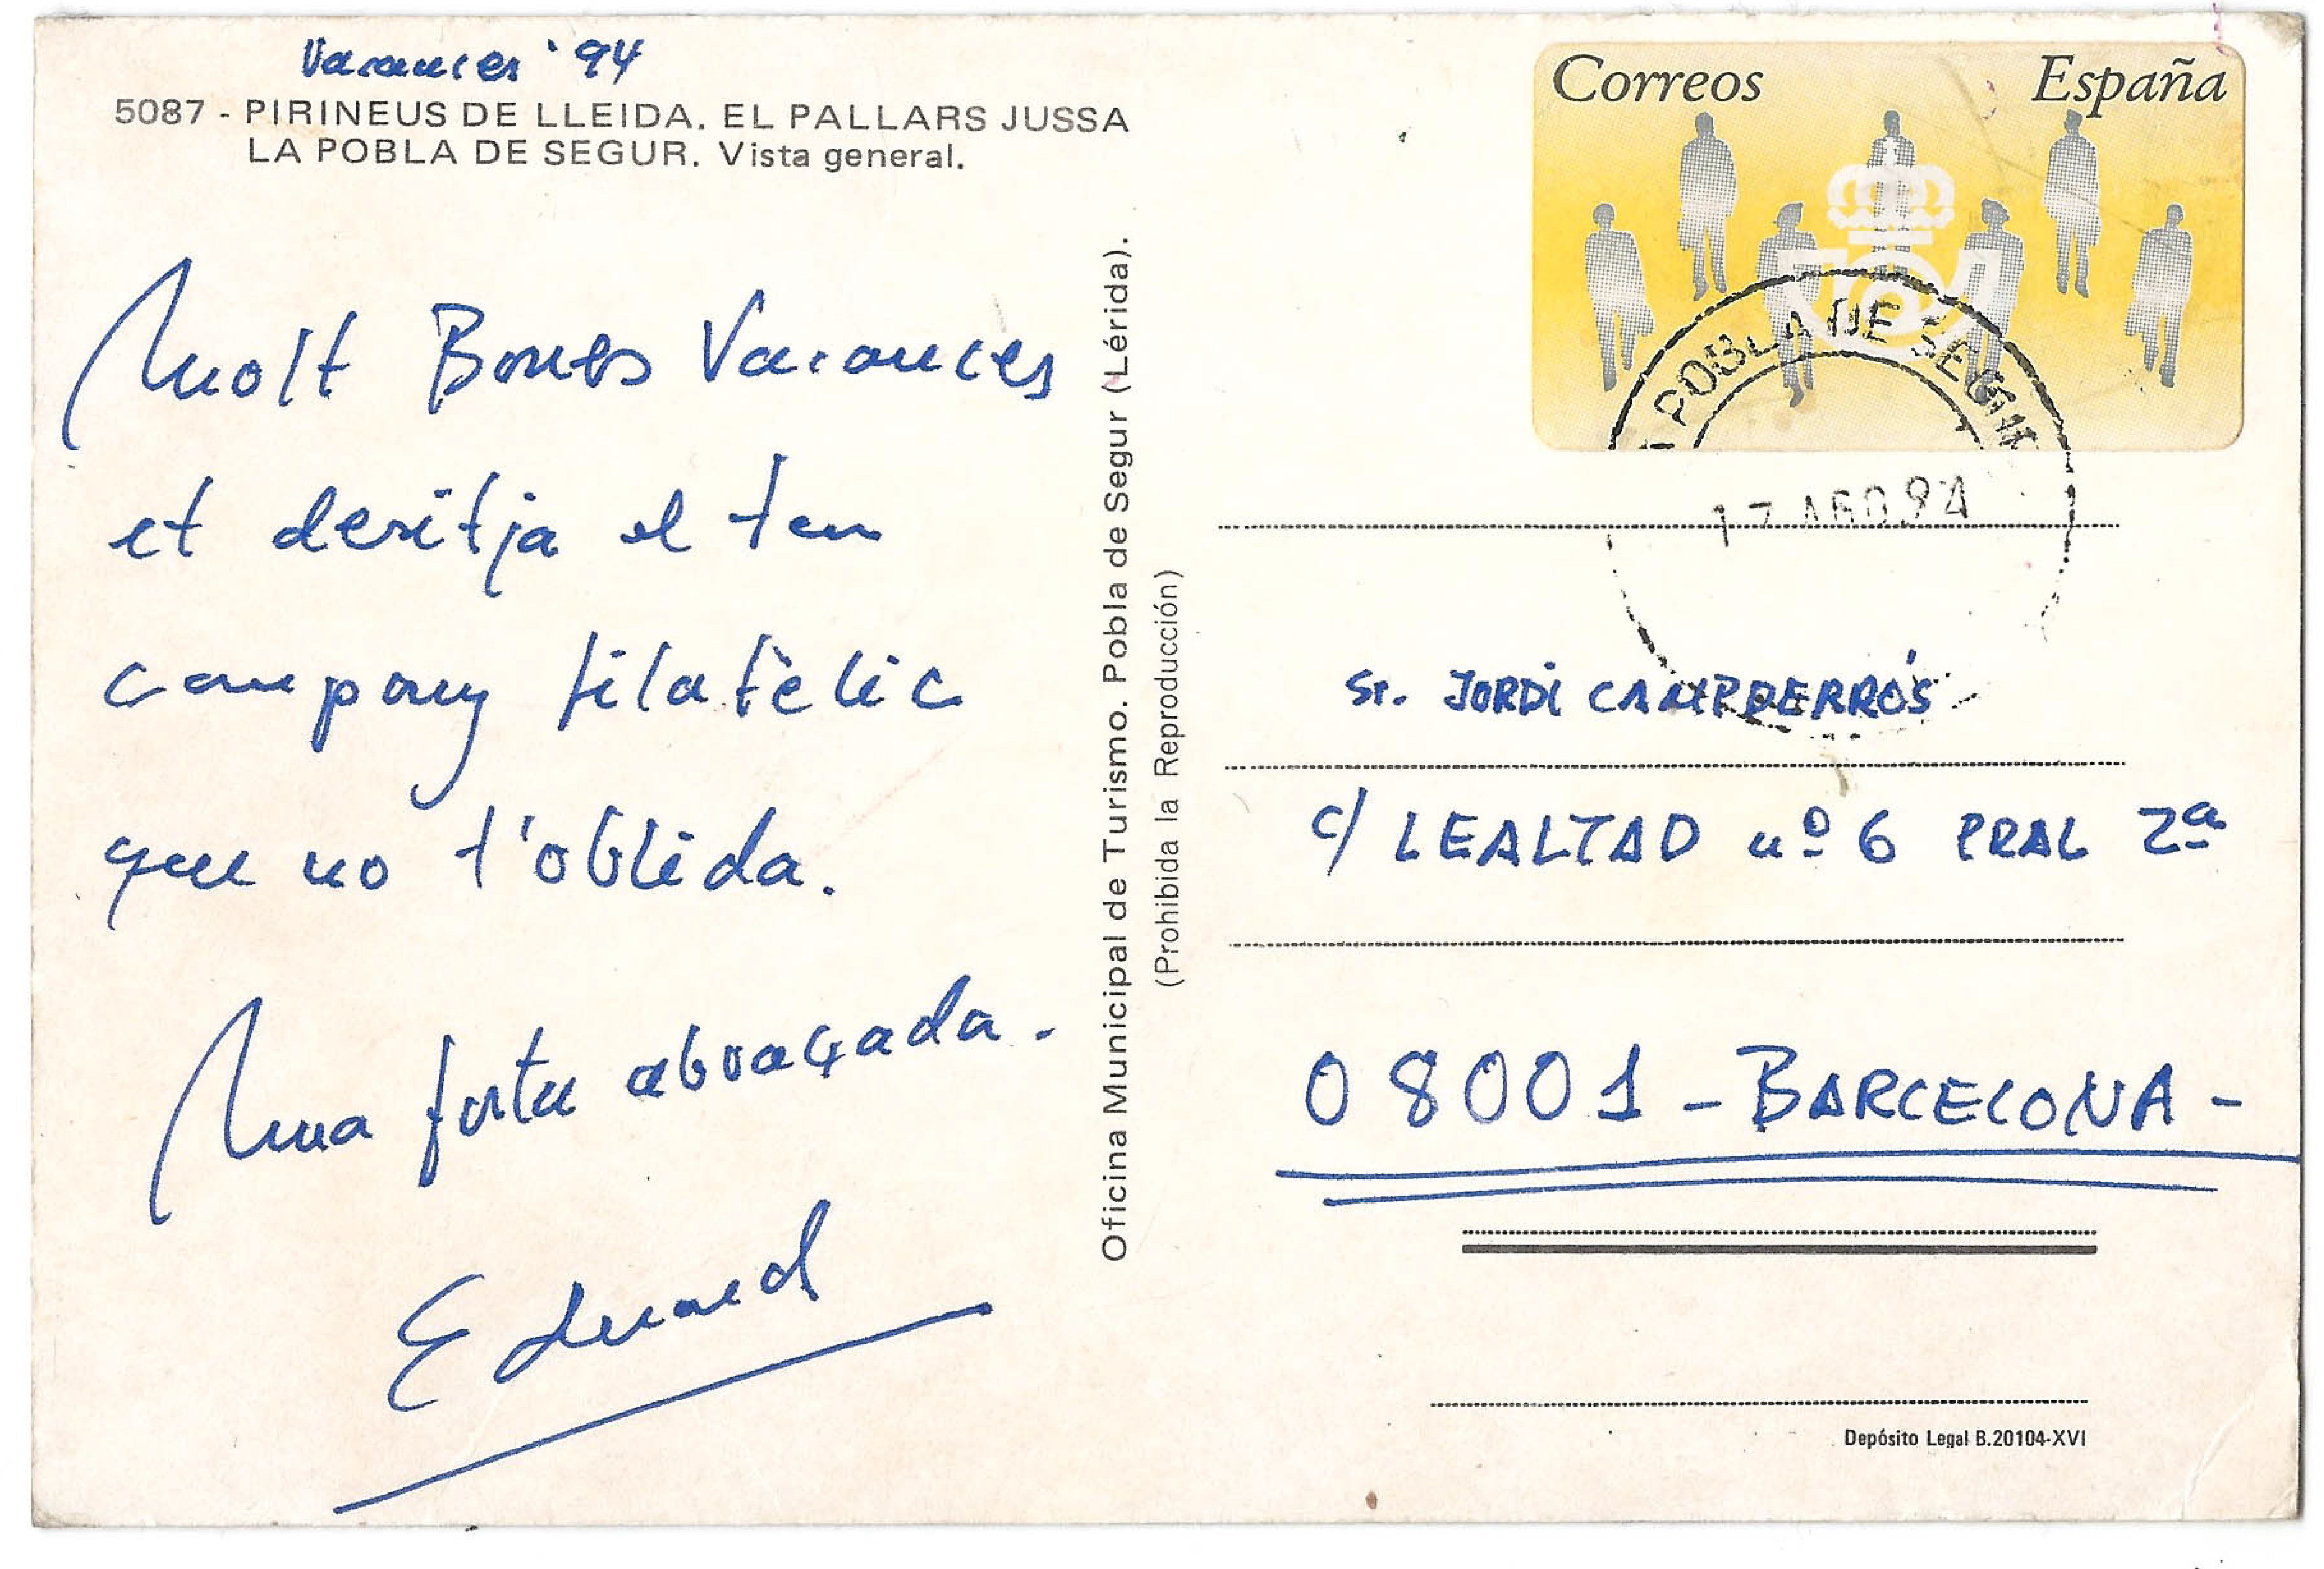 Vacances '94
5087 - PIRINEUS DE LLEIDA. EL PALLARS JUSSA
LA POBLA DE SEGUR. Vista general.
Molt Bones Vacances
et desitja el teu
company filatèlic
que no t'oblida.
Una forta abraçada.
Eduard
Oficina Municipal de Turismo. Pobla de Segur (Lérida).
(Prohibida la Reproducción)
Correos España
A POBLA DE SEGUR
17 AGO.94
Sr. JORDI CAMPDERRÓS
c/ LEALTAD nº 6 PRAL 2ª
08001 - BARCELONA -
Depósito Legal B.20104-XVI